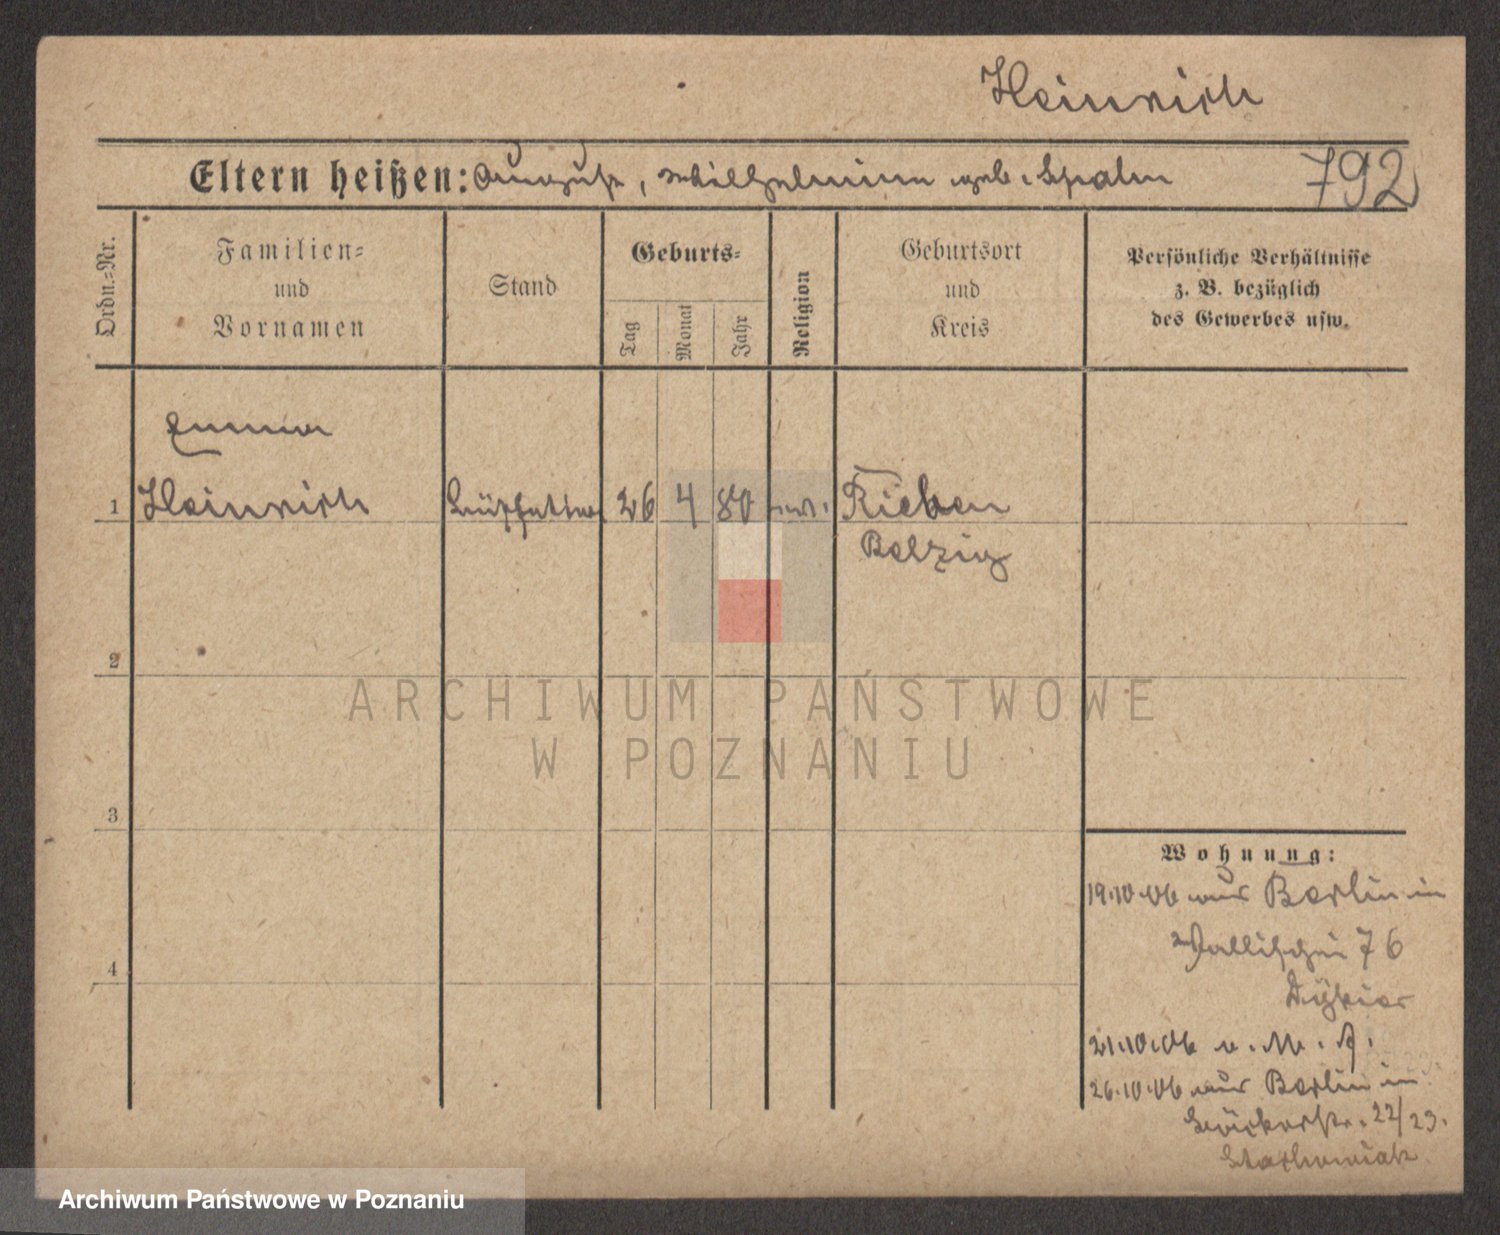 Heinrich
Eltern heißen: August, Wilhelmine geb. Spalm 792
Ordn.-Nr.
Familien-
und
Vornamen
Stand
Geburts-
Tag
Monat
Jahr
Religion
Geburtsort
und
Kreis
Persönliche Verhältnisse
z. B. bezüglich
des Gewerbes usw.
Emma
1 Heinrich Büffettm 26 4 80 ev. Rieben
Belzig
2
3
4
Wohnung:
19.10.06 aus Berlin in
Wallischei 76
21.10.06 u. M. A.
26.10.06 aus Berlin in
Bäckerstr. 22/23.
ARCHIWUM PAŃSTWOWE
W POZNANIU
Archiwum Państwowe w Poznaniu